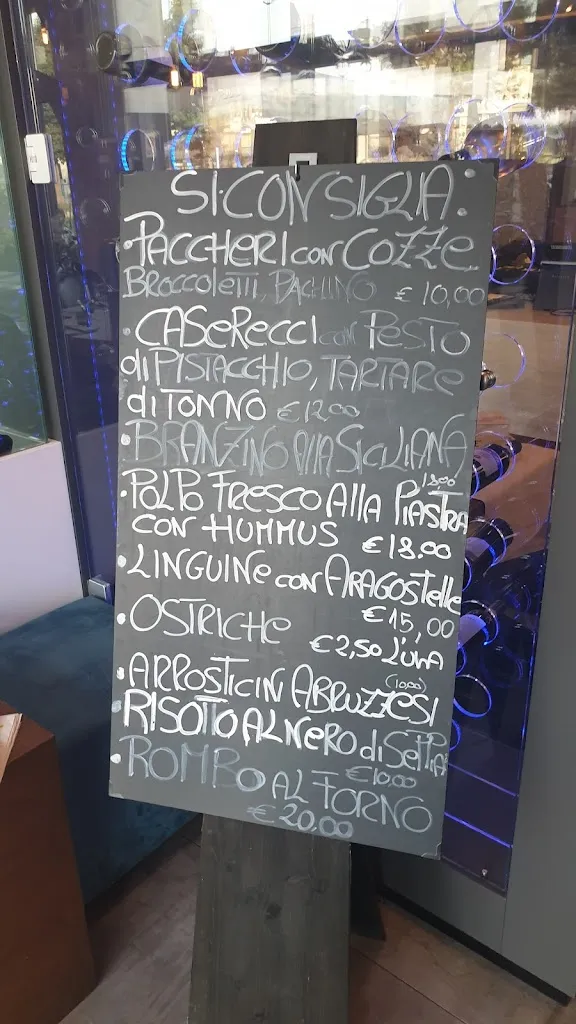 SI CONSIGLIA.
• PACCHERI con COZZE
BROCCOLETTI, PACHINO € 10,00
• CASERECCI con PESTO
di PISTACCHIO, TARTARE
di TONNO € 12,00
• BRANZINO ALLA SICILIANA
18,00
• POLPO FRESCO ALLA PIASTRA
CON HUMMUS € 18,00
• LINGUINE con ARAGOSTELLE
€ 15,00
• OSTRICHE
€ 2,50 L'UNA
• ARROSTICIN ABRUZZESI
(10,00)
• RISOTTO AL NERO di SEPPIA
€ 10,00
• ROMBO AL FORNO
€ 20,00